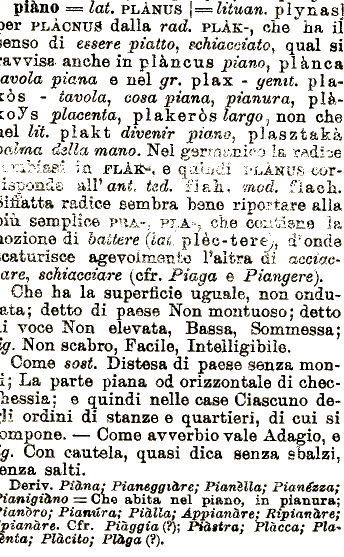 piàno = lat. PLÀNUS [= lituan. plynas]
per PLACNUS dalla rad. PLÀK-, che ha il
senso di essere piatto, schiacciato, qual si
ravvisa anche in plàncus piano, plànca
tavola piana e nel gr. plax - genit. pla-
kòs - tavola, cosa piana, pianura, pla-
koỳs placenta, plakeròs largo, non che
nel lit. plakt divenir piano, plasztakà
palma della mano. Nel germanico la radice
in FLÀK-, e quindi PLÀNUS cor-
risponde all' ant. ted. flah. mod. flach.
Siffatta radice sembra bene riportare alla
più semplice PRA-, PLA-, che contiene la
nozione di battere (lat. plèc-tere), d'onde
scaturisce agevolmente l'altra di acciac-
care, schiacciare (cfr. Piaga e Piangere).
Che ha la superficie uguale, non ondu-
lata; detto di paese Non montuoso; detto
di voce Non elevata, Bassa, Sommessa;
fig. Non scabro, Facile, Intelligibile.
Come sost. Distesa di paese senza mon-
ti; La parte piana od orizzontale di chec-
chessia; e quindi nelle case Ciascuno de-
gli ordini di stanze e quartieri, di cui si
compone. — Come avverbio vale Adagio, e
fig. Con cautela, quasi dica senza sbalzi,
senza salti.
Deriv. Piàna; Pianeggiàre; Pianèlla; Pianézza;
Pianigiàno = Che abita nel piano, in pianura;
Pianòro; Pianúra; Piàlla; Appianàre; Ripianàre;
Spianàre. Cfr. Piàggia (?); Piàstra; Plàcca; Pla-
cènta; Plàcito; Plàga (?).